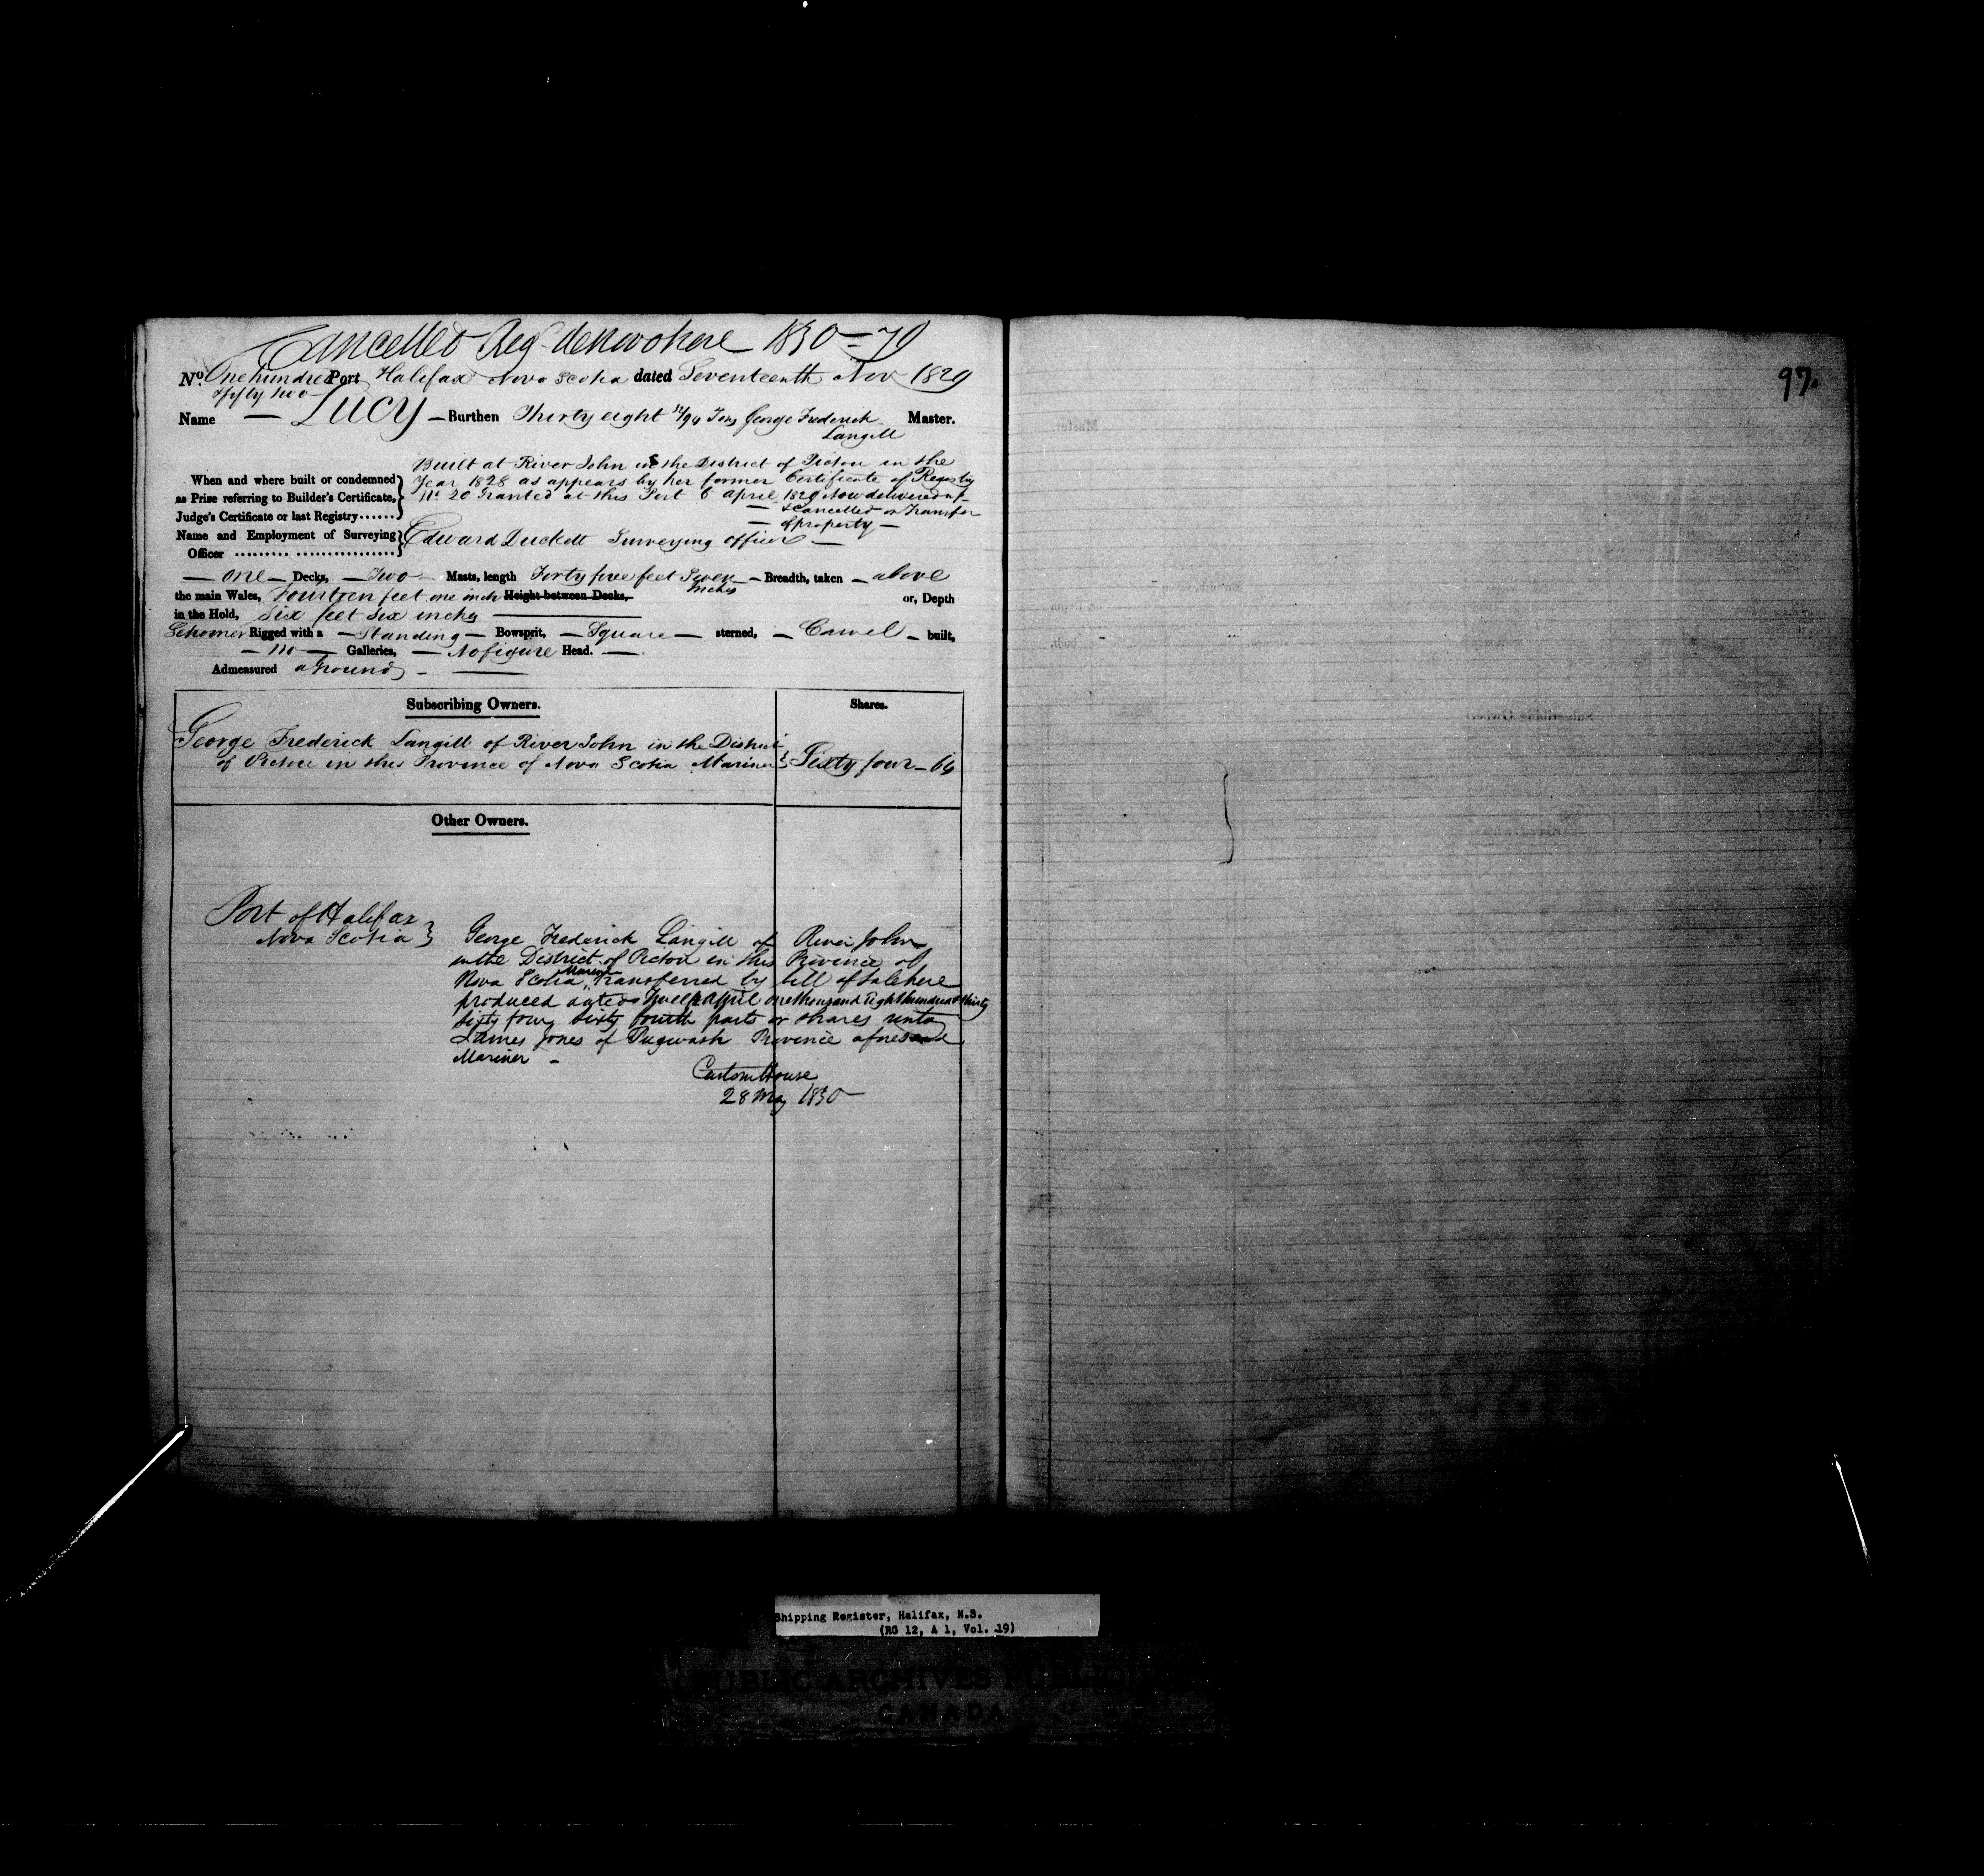 Cancelled Reg denovo here 1830=70
No. One hundred Port Halifax Nova Scotia dated Seventeenth Nov 1829
& fifty two
Name — Lucy — Burthen Thirty eight /94 Tons George Frederick Master.
Langill
Built at River John in the District of Pictou in the
When and where built or condemned Year 1828 as appears by her former Certificate of Registry
as Prize referring to Builder's Certificate, No. 20 Granted at this Port 6 April 1829 Now delivered up
Judge's Certificate or last Registry...... — & Cancelled or Transfer
— of property —
Name and Employment of Surveying Edward Duckett Surveying officer —
Officer ......... .................
— One — Decks, — Two — Masts, length Forty five feet Seven — Breadth, taken — above
Inches
the main Wales, Fourteen feet one inch Height between Decks, or, Depth
in the Hold, Six feet Six inches
Schooner Rigged with a — Standing — Bowsprit, — Square — sterned, — Carvel — built,
— no — Galleries, — No figure Head. —
Admeasured aground —
Subscribing Owners. Shares.
George Frederick Langill of River John in the District
of Pictou in this Province of Nova Scotia Mariner } Sixty four — 64
Other Owners.
Port of Halifax
Nova Scotia }
George Frederick Langill of River John
in the District of Pictou in this Province of
Nova Scotia Mariner Transferred by bill of sale here
produced dated April one thousand Eight hundred & thirty
Sixty four sixty fourth parts or shares unto
James Jones of Pugwash Province aforesaid
Mariner —
Custom House
28 May 1830
97.
Shipping Register, Halifax, N.S.
(RG 12, A 1, Vol. 19)
PUBLIC ARCHIVES PUBLIQUES
CANADA